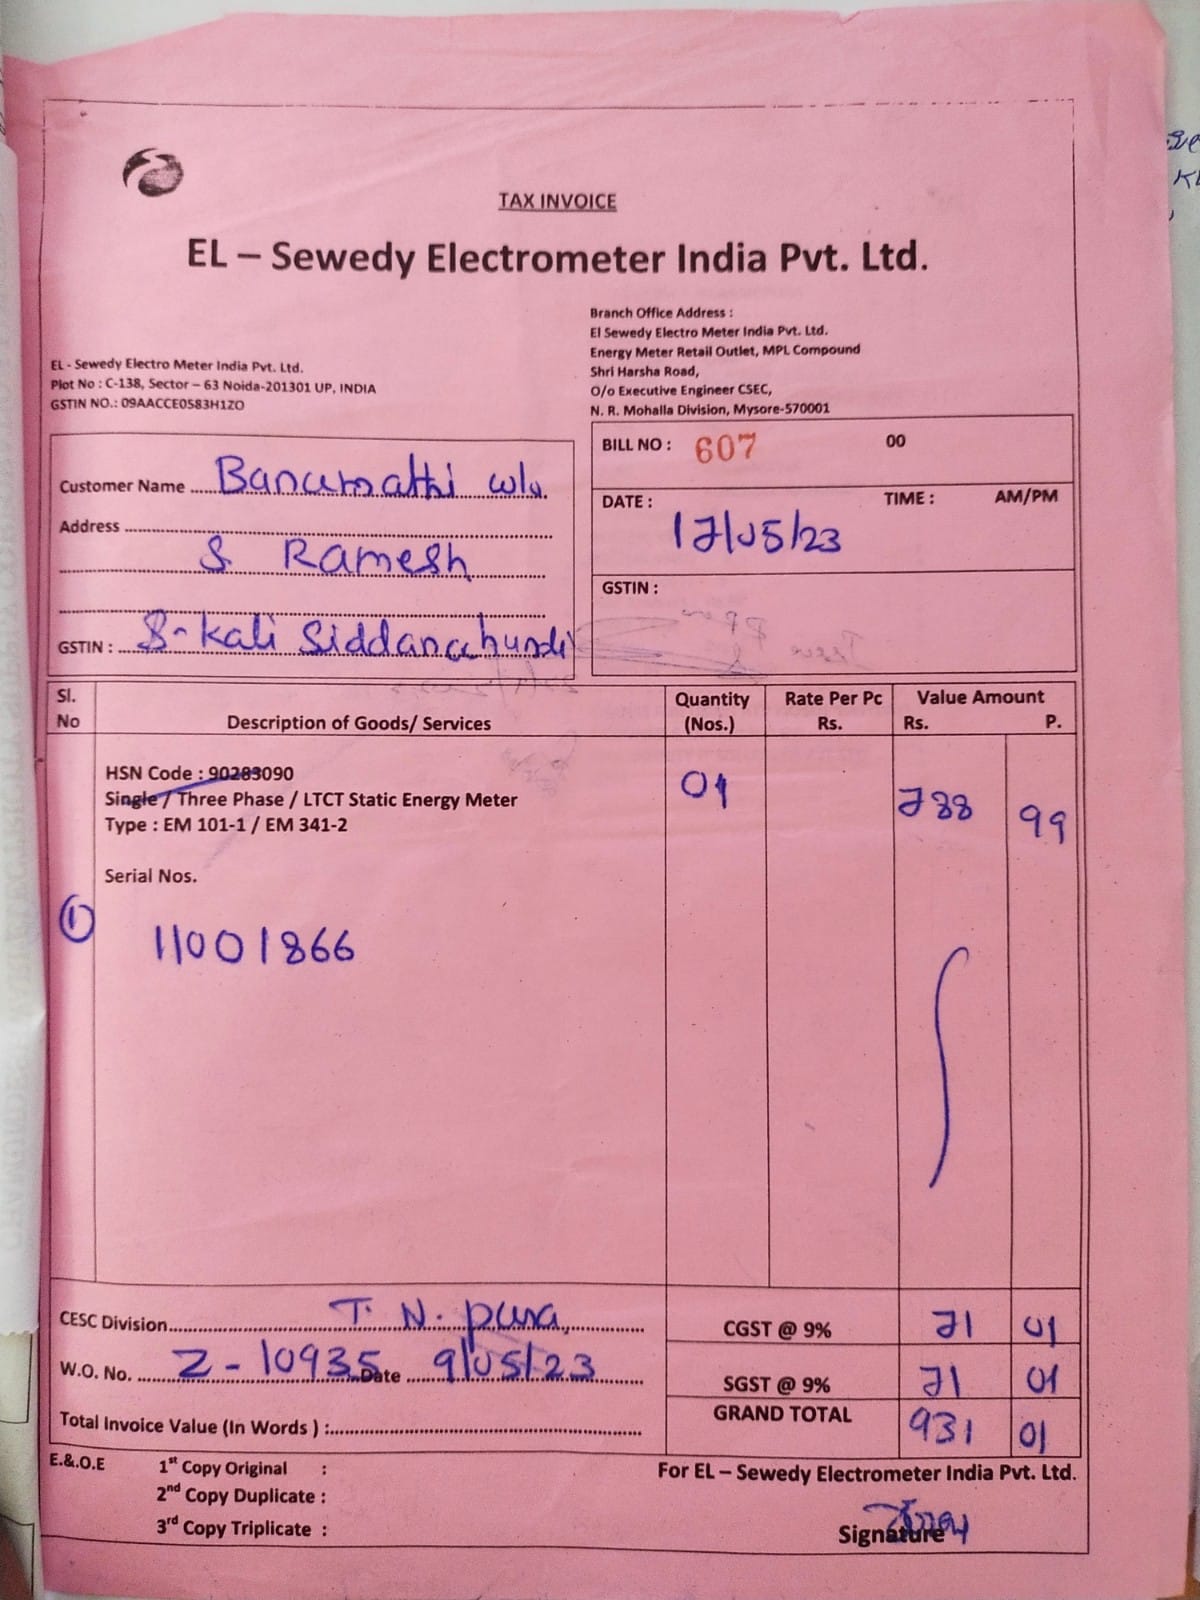 TAX INVOICE
EL – Sewedy Electrometer India Pvt. Ltd.
EL - Sewedy Electro Meter India Pvt. Ltd.
Plot No : C-138, Sector – 63 Noida-201301 UP, INDIA
GSTIN NO.: 09AACCE0583H1ZO
Branch Office Address :
El Sewedy Electro Meter India Pvt. Ltd.
Energy Meter Retail Outlet, MPL Compound
Shri Harsha Road,
O/o Executive Engineer CSEC,
N. R. Mohalla Division, Mysore-570001
Customer Name Banumathi w/o.
Address
S. Ramesh
GSTIN : S-kali Siddanahundi
BILL NO : 607 00
DATE : TIME : AM/PM
17/05/23
GSTIN :
Sl. No Description of Goods/ Services Quantity (Nos.) Rate Per Pc Rs. Value Amount Rs. P.
HSN Code : 90283090
Single / Three Phase / LTCT Static Energy Meter 01 788 99
Type : EM 101-1 / EM 341-2
Serial Nos.
1 11001866
CESC Division T. N. pura, CGST @ 9% 71 01
W.O. No. Z-10935 Date 9/05/23 SGST @ 9% 71 01
Total Invoice Value (In Words ) : GRAND TOTAL 931 01
E.&.O.E 1st Copy Original :
2nd Copy Duplicate :
3rd Copy Triplicate :
For EL – Sewedy Electrometer India Pvt. Ltd.
Signature